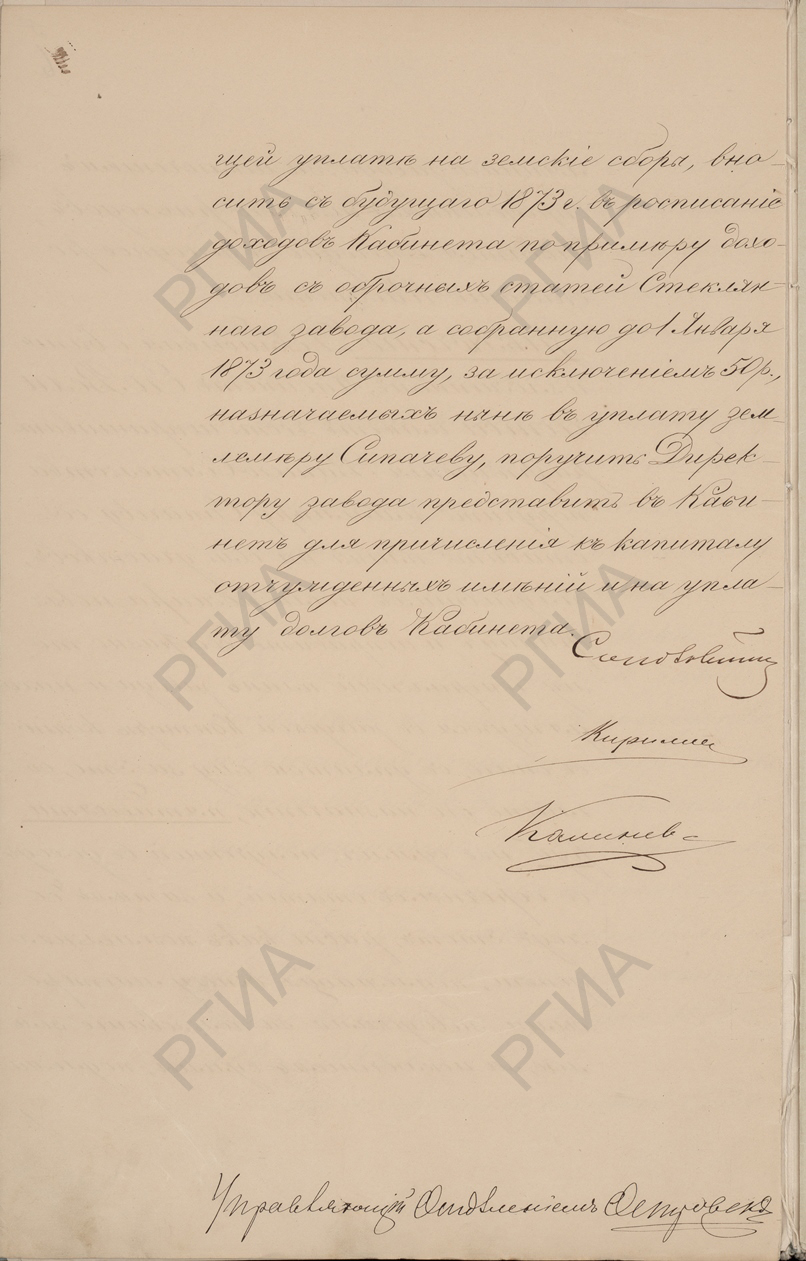 щей уплатѣ на земскіе сборы, вно-
сить съ будущаго 1873 г. въ росписаніе
доходовъ Кабинета по примѣру дохо-
довъ съ оброчныхъ статей Стеклян-
наго завода, а собранную до 1 Января
1873 года сумму, за исключеніемъ 50 р.,
назначаемыхъ нынѣ въ уплату зем-
лемѣру Сипачеву, поручить Дирек-
тору завода представить въ Каби-
нетъ для причисленія къ капиталу
отчужденныхъ имѣній и на упла-
ту долговъ Кабинета.
Кирилин
Калинов
Управляющій Отдѣленіемъ
РГИА
РГИА
РГИА
РГИА
РГИА
РГИА